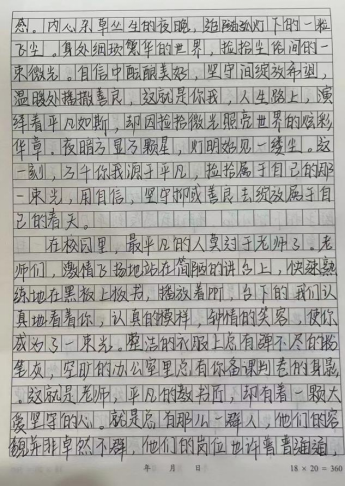 感。内心杂草丛生的夜晚,追随路灯下的一粒
飞尘。身处细琐繁华的世界,捡拾尘俗间的一
束微光。自信中酝酿美好,坚守间绽放希望,
温暖处播撒善良,这就是你我,人生路上,演
绎着平凡如斯,却因捡拾微光照亮世界的炫彩
华章。夜暗了显了颗星,灯明始见一缕尘。这
一刻,万千你我源于平凡,捡拾属于自己的那
一束光,用自信,坚守抑或善良去绽放属于自
己的春天。
在校园里,最平凡的人莫过于老师了。老
师们,激情飞扬地站在简陋的讲台上,快速熟
练地在黑板上板书,播放着,台下的我们认
真地看着你,认真的模样,钟情的笑容,使你
成为了一束光。整洁的衣服上总有弹不尽的粉
笔灰,空旷的办公室里总有你备课判卷的身影
。这就是老师,平凡的教书匠,却有着一颗大
爱坚守的心。就是总有那么一群人,他们的容
貌并非卓然不群,他们的岗位也许普普通通,
年 月 日
18×20=360